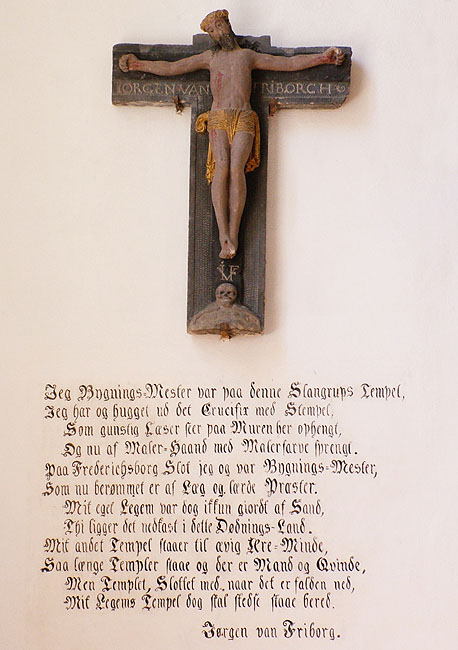 IORGEN VAN FRIBORCH
IVF
Jeg Bygnings-Mester var paa denne Slangrups Tempel,
Jeg har og hugget ud det Crucifix med Stempel,
Som gunstig Læser seer paa Muren her ophengt,
Og nu af Maler-Haand med Malerfarve sprengt.
Paa Frederichsborg Slot jeg og var Bygnings-Mester,
Som nu berømmet er af Læg og lærde Præster.
Mit eget Legem var dog ikkun giordt af Sand,
Thi ligger det nedkast i dette Dødnings-Land.
Mit andet Tempel staaer til ævig Ære-Minde,
Saa længe Templer staae og der er Mand og Qvinde,
Men Templet, Slottet med, naar det er falden ned,
Mit Legems Tempel dog skal stedse staae bered.
Jørgen van Friborg.